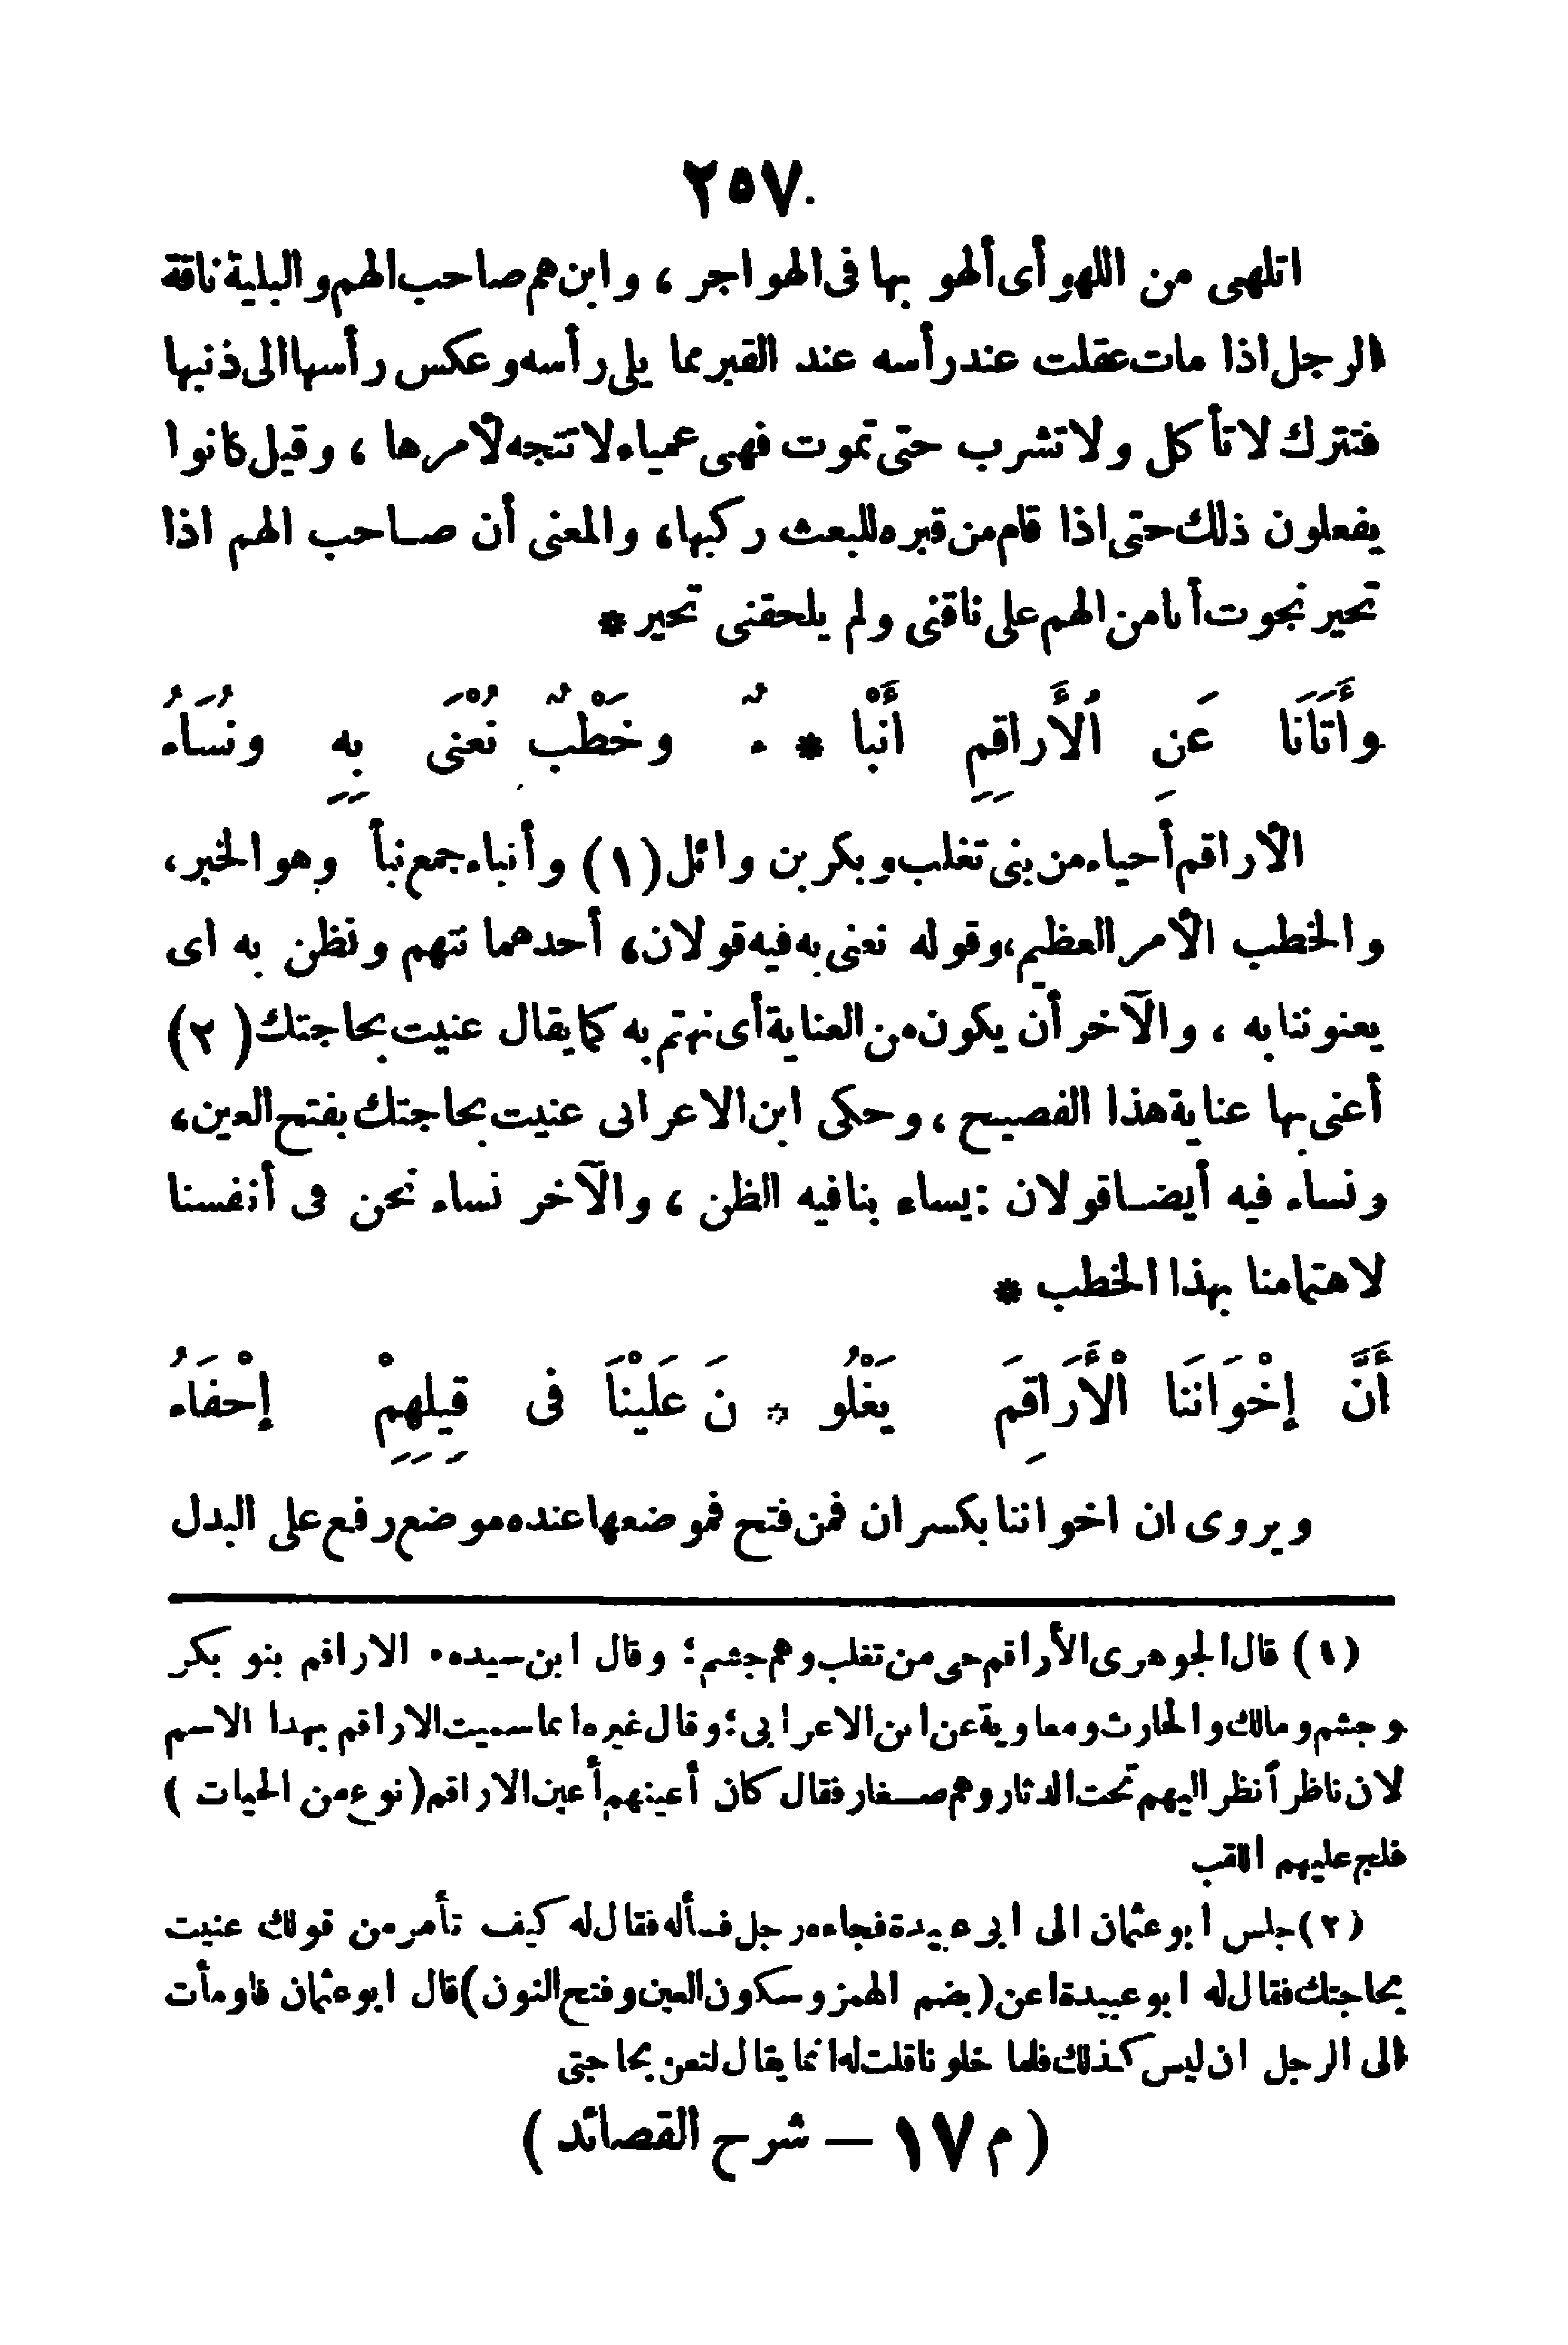 ٢٥٧
اتلهى من اللهو أى ألهو بها فى الهواجر ، وابن هم صاحب الهم والبلية ناقة
الرجل اذا مات عقلت عند رأسه عند القبر مما يلى رأسه وعكس رأسها الى ذنبها
فتترك لا تأكل ولا تشرب حتى تموت فهى عمياء لا تتجه لأمرها ، وقيل كانوا
يفعلون ذلك حتى اذا قام من قبره للبعث ركبها ، والمعنى أن صاحب الهم اذا
تحير نجوت أنا من الهم على ناقتى ولم يلحقنى تحير *
وأَتَانَا عَنِ اُلْأَراقِمِ أَنْبا * ءٌ وخَطْبٌ نُعْنَى بِهِ ونُسَاءُ
الأراقم أحياء من بنى تغلب وبكر بن وائل (١) وأنباء جمع نبأ وهو الخبر ،
والخطب الأمر العظيم ، وقوله نعنى به فيه قولان ، أحدهما نتهم ونظن به اى
يعنوننا به ، والآخر أن يكون من العناية أى نهتم به كما يقال عنيت بحاجتك (٢)
أعنى بها عناية هذا الفصيح ، وحكى ابن الاعرابى عنيت بحاجتك بفتح العين ،
ونساء فيه أيضاً قولان : يساء بنا فيه الظن ، والآخر نساء نحن فى أنفسنا
لاهتمامنا بهذا الخطب *
أَنَّ إِخْوَانَنَا الْأَرَاقِمَ يَغْلُو * نَ عَلَيْنَا فى قِيلِهِمْ إِحْفَاءُ
ويروى ان اخواننا بكسر ان فمن فتح فموضعها عنده موضع رفع على البدل
(١) قال الجوهرى الأراقم حى من تغلب وهم جشم ؛ وقال ابن سيده • الاراقم بنو بكر
وجشم ومالك والحارث ومعاوية عن ابن الاعرابى ؛ وقال غيره انما سميت الاراقم بهذا الاسم
لان ناظراً نظر اليهم تحت الدثار وهم صغار فقال كان أعينهم أعين الاراقم (نوع من الحيات)
فلج عليهم اللقب
(٢) جلس ابو عثمان الى ابى عبيدة فجاءه رجل فسأله فقال له كيف تأمر من قولك عنيت
بحاجتك فقال له ابو عبيدة اعن (بضم الهمز وسكون العين وفتح النون) قال ابو عثمان فاومأت
الى الرجل ان ليس كذلك فلما خلونا قلت له انما يقال لتعن بحاجتى
( م ١٧ — شرح القصائد )